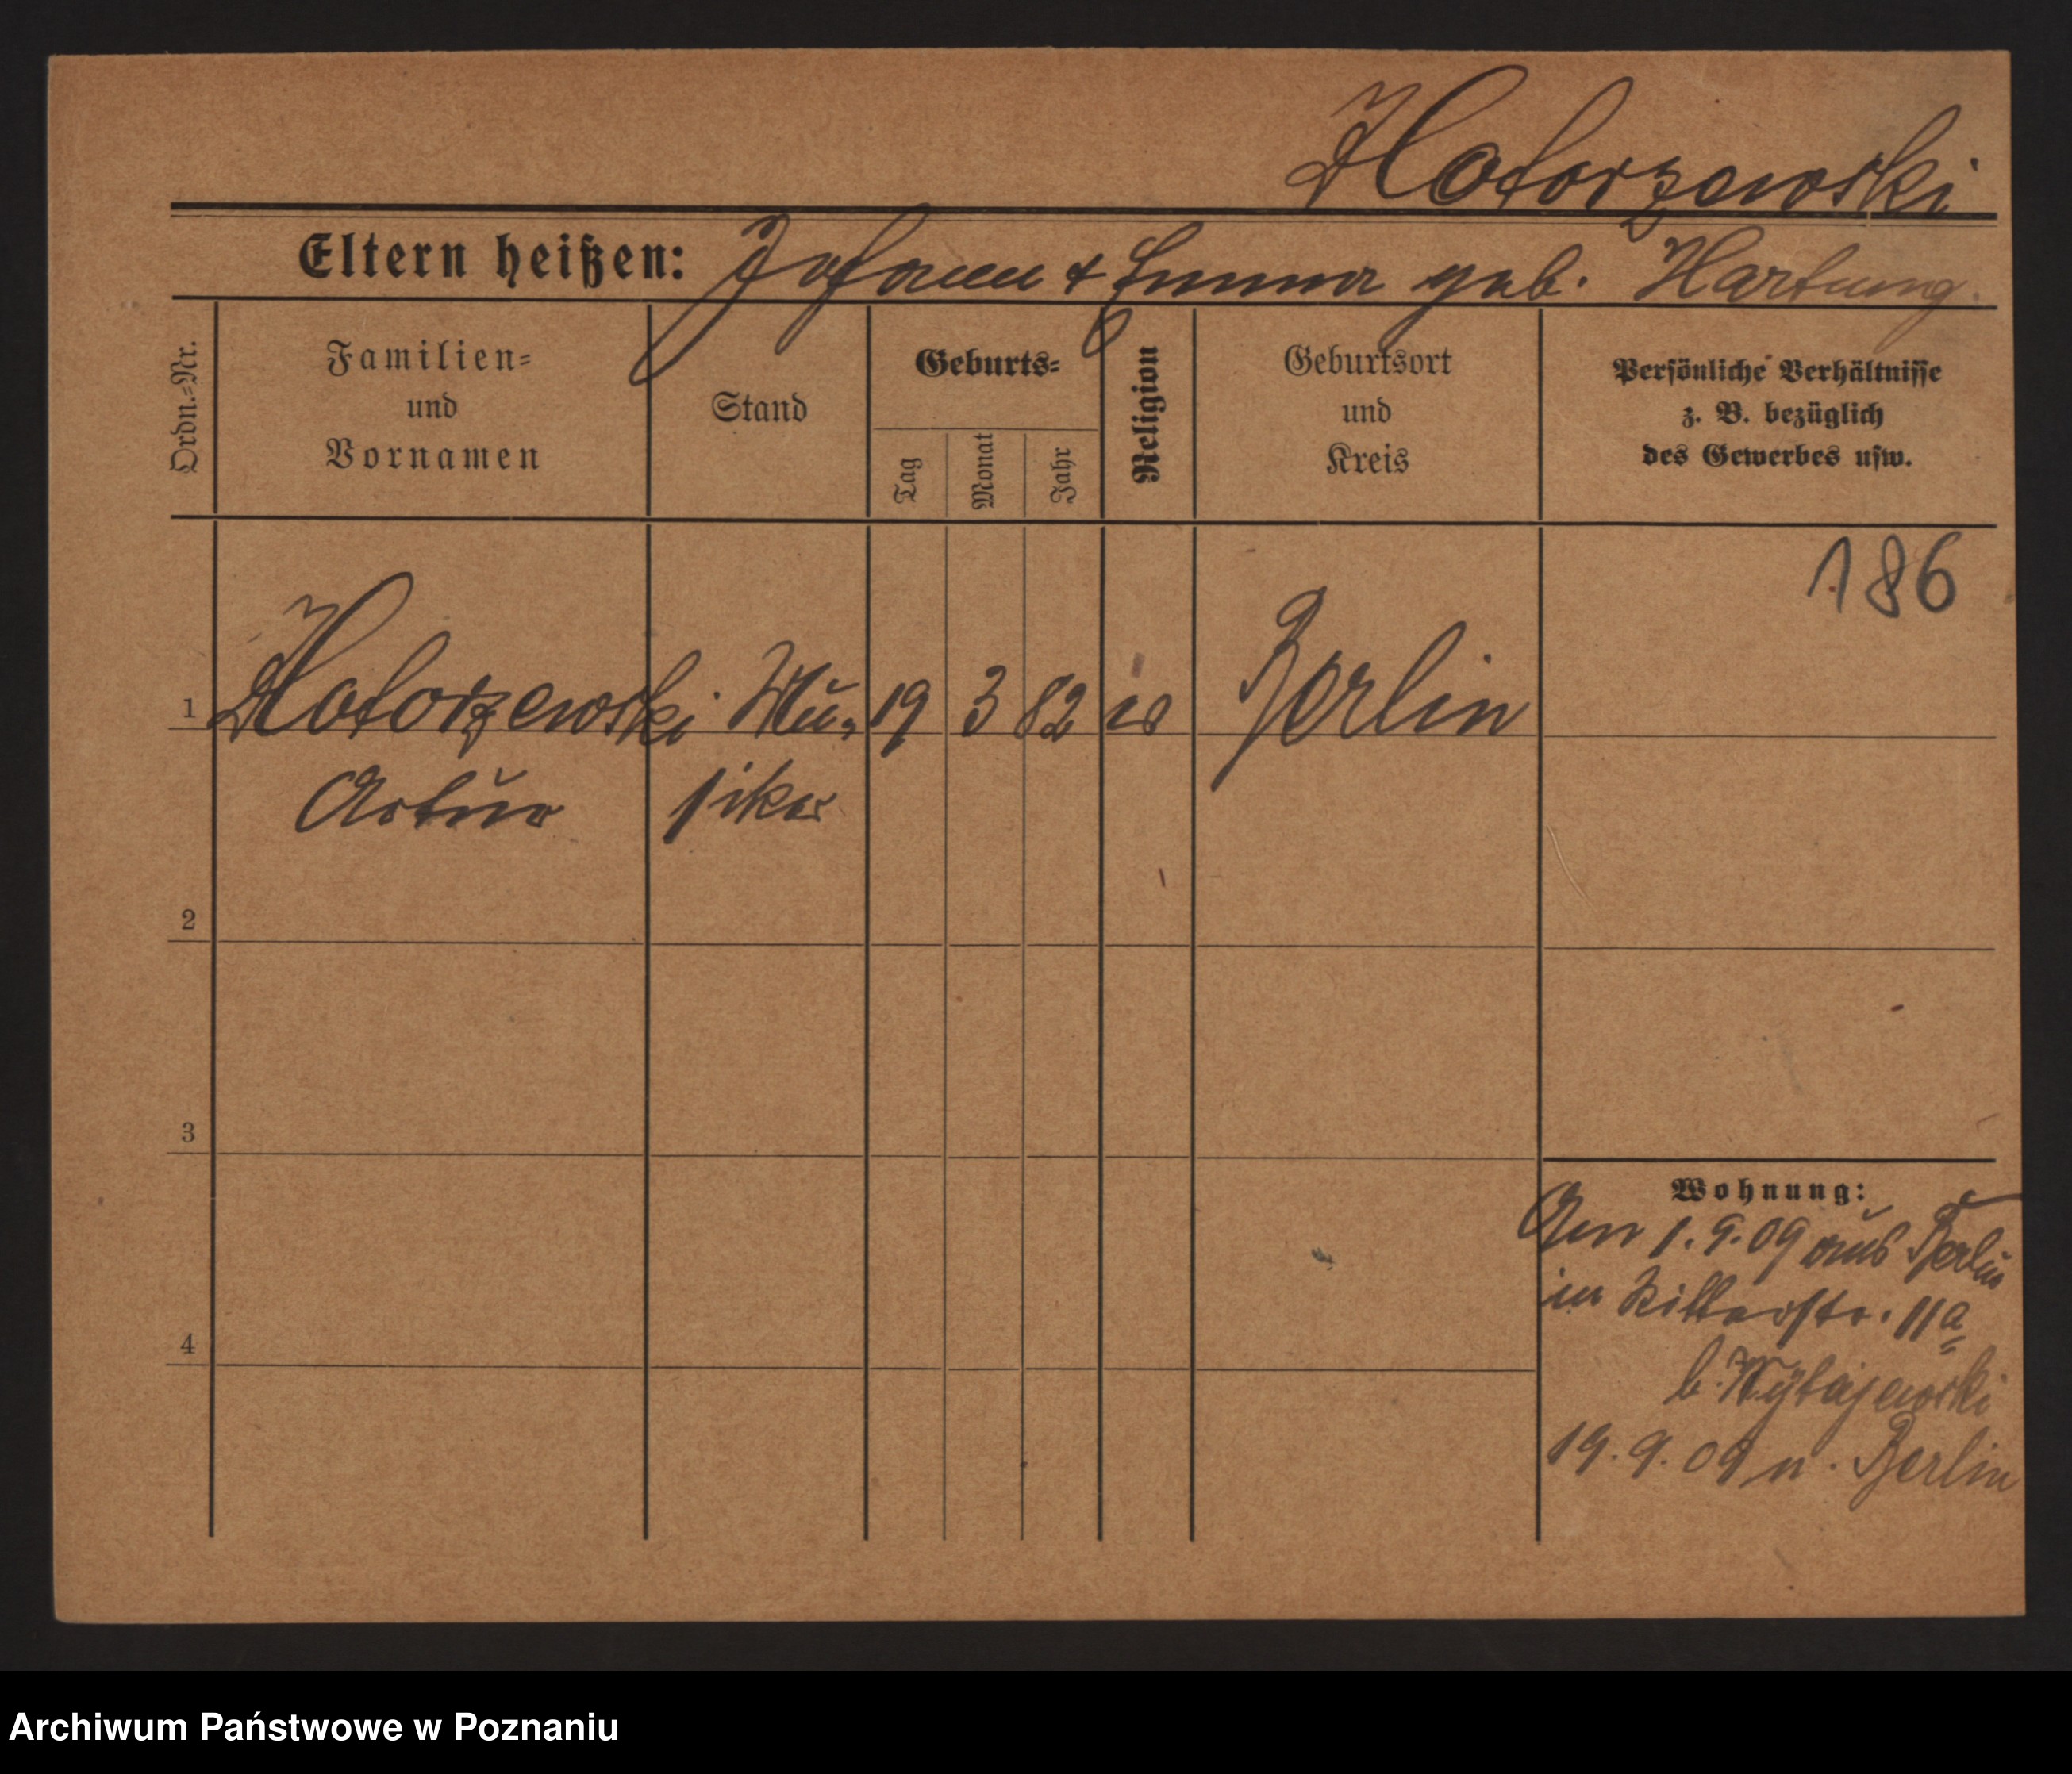 Kotorzewski
Eltern heißen: Johann & Emma geb. Hartung.
Ordn.=Nr.
Familien=
und
Vornamen
Stand
Geburts=
Tag
Monat
Jahr
Religion
Geburtsort
und
Kreis
Persönliche Verhältnisse
z. B. bezüglich
des Gewerbes usw.
186
1 Kotorzewski Mu= 19 3 82 Berlin
Artur siker
2
3
4
Wohnung:
Am 1.9.09 aus Berlin
in Ritterstr. 11a
b.
19.9.09 n. Berlin
Archiwum Państwowe w Poznaniu